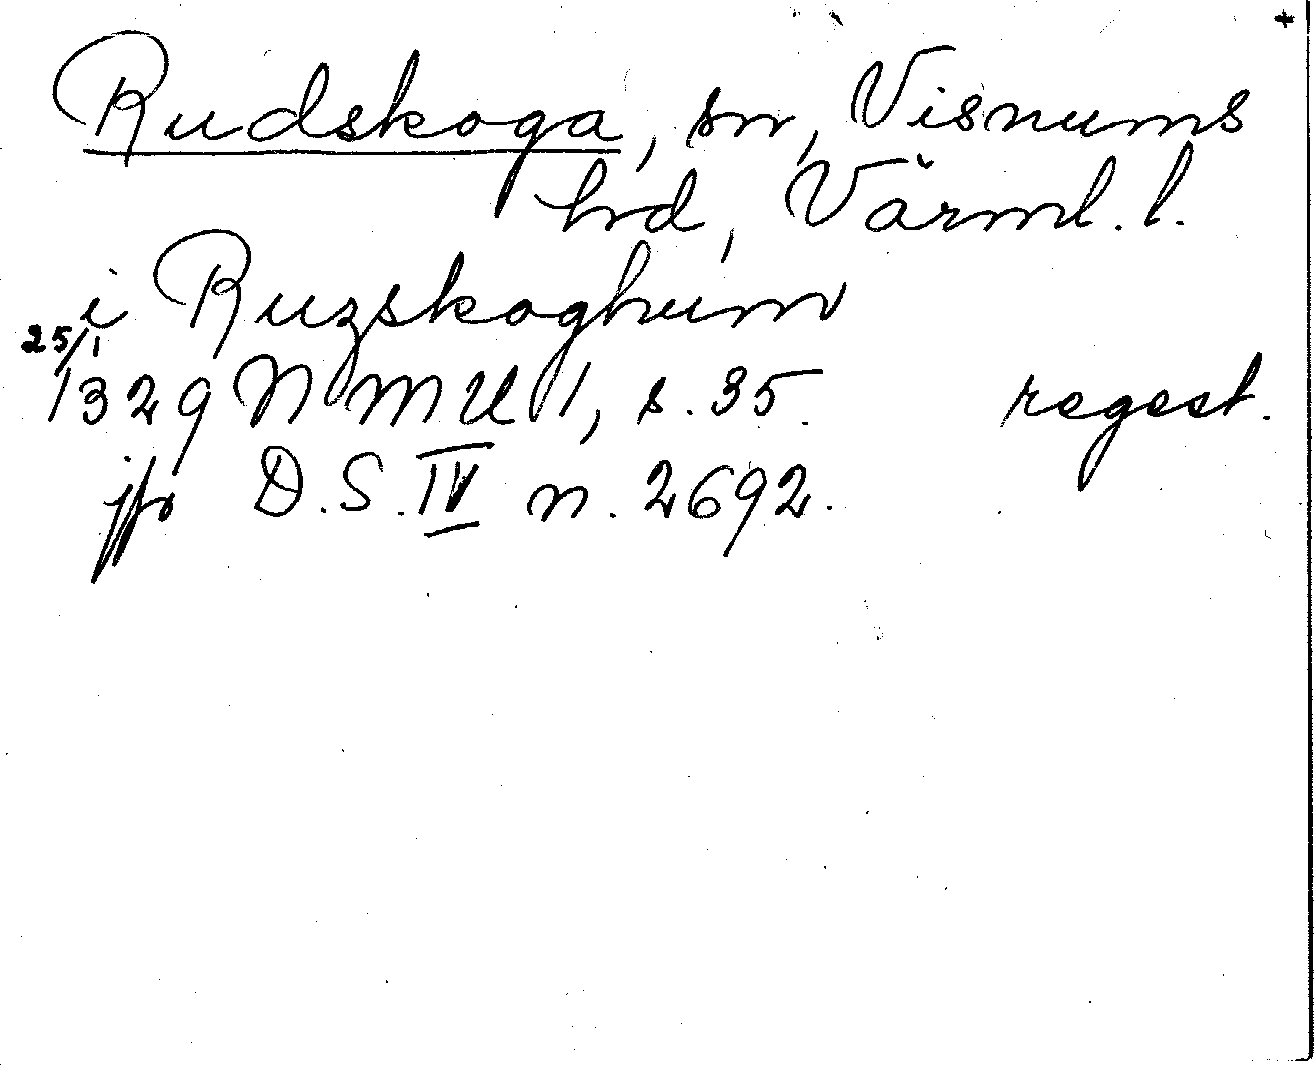 +
Rudskoga, sn, Visnums
hd, Värml. l.
i Ruzskoghum
25/1 1329 NMU 1, s. 35. regest.
jfr D.S. IV n. 2692.